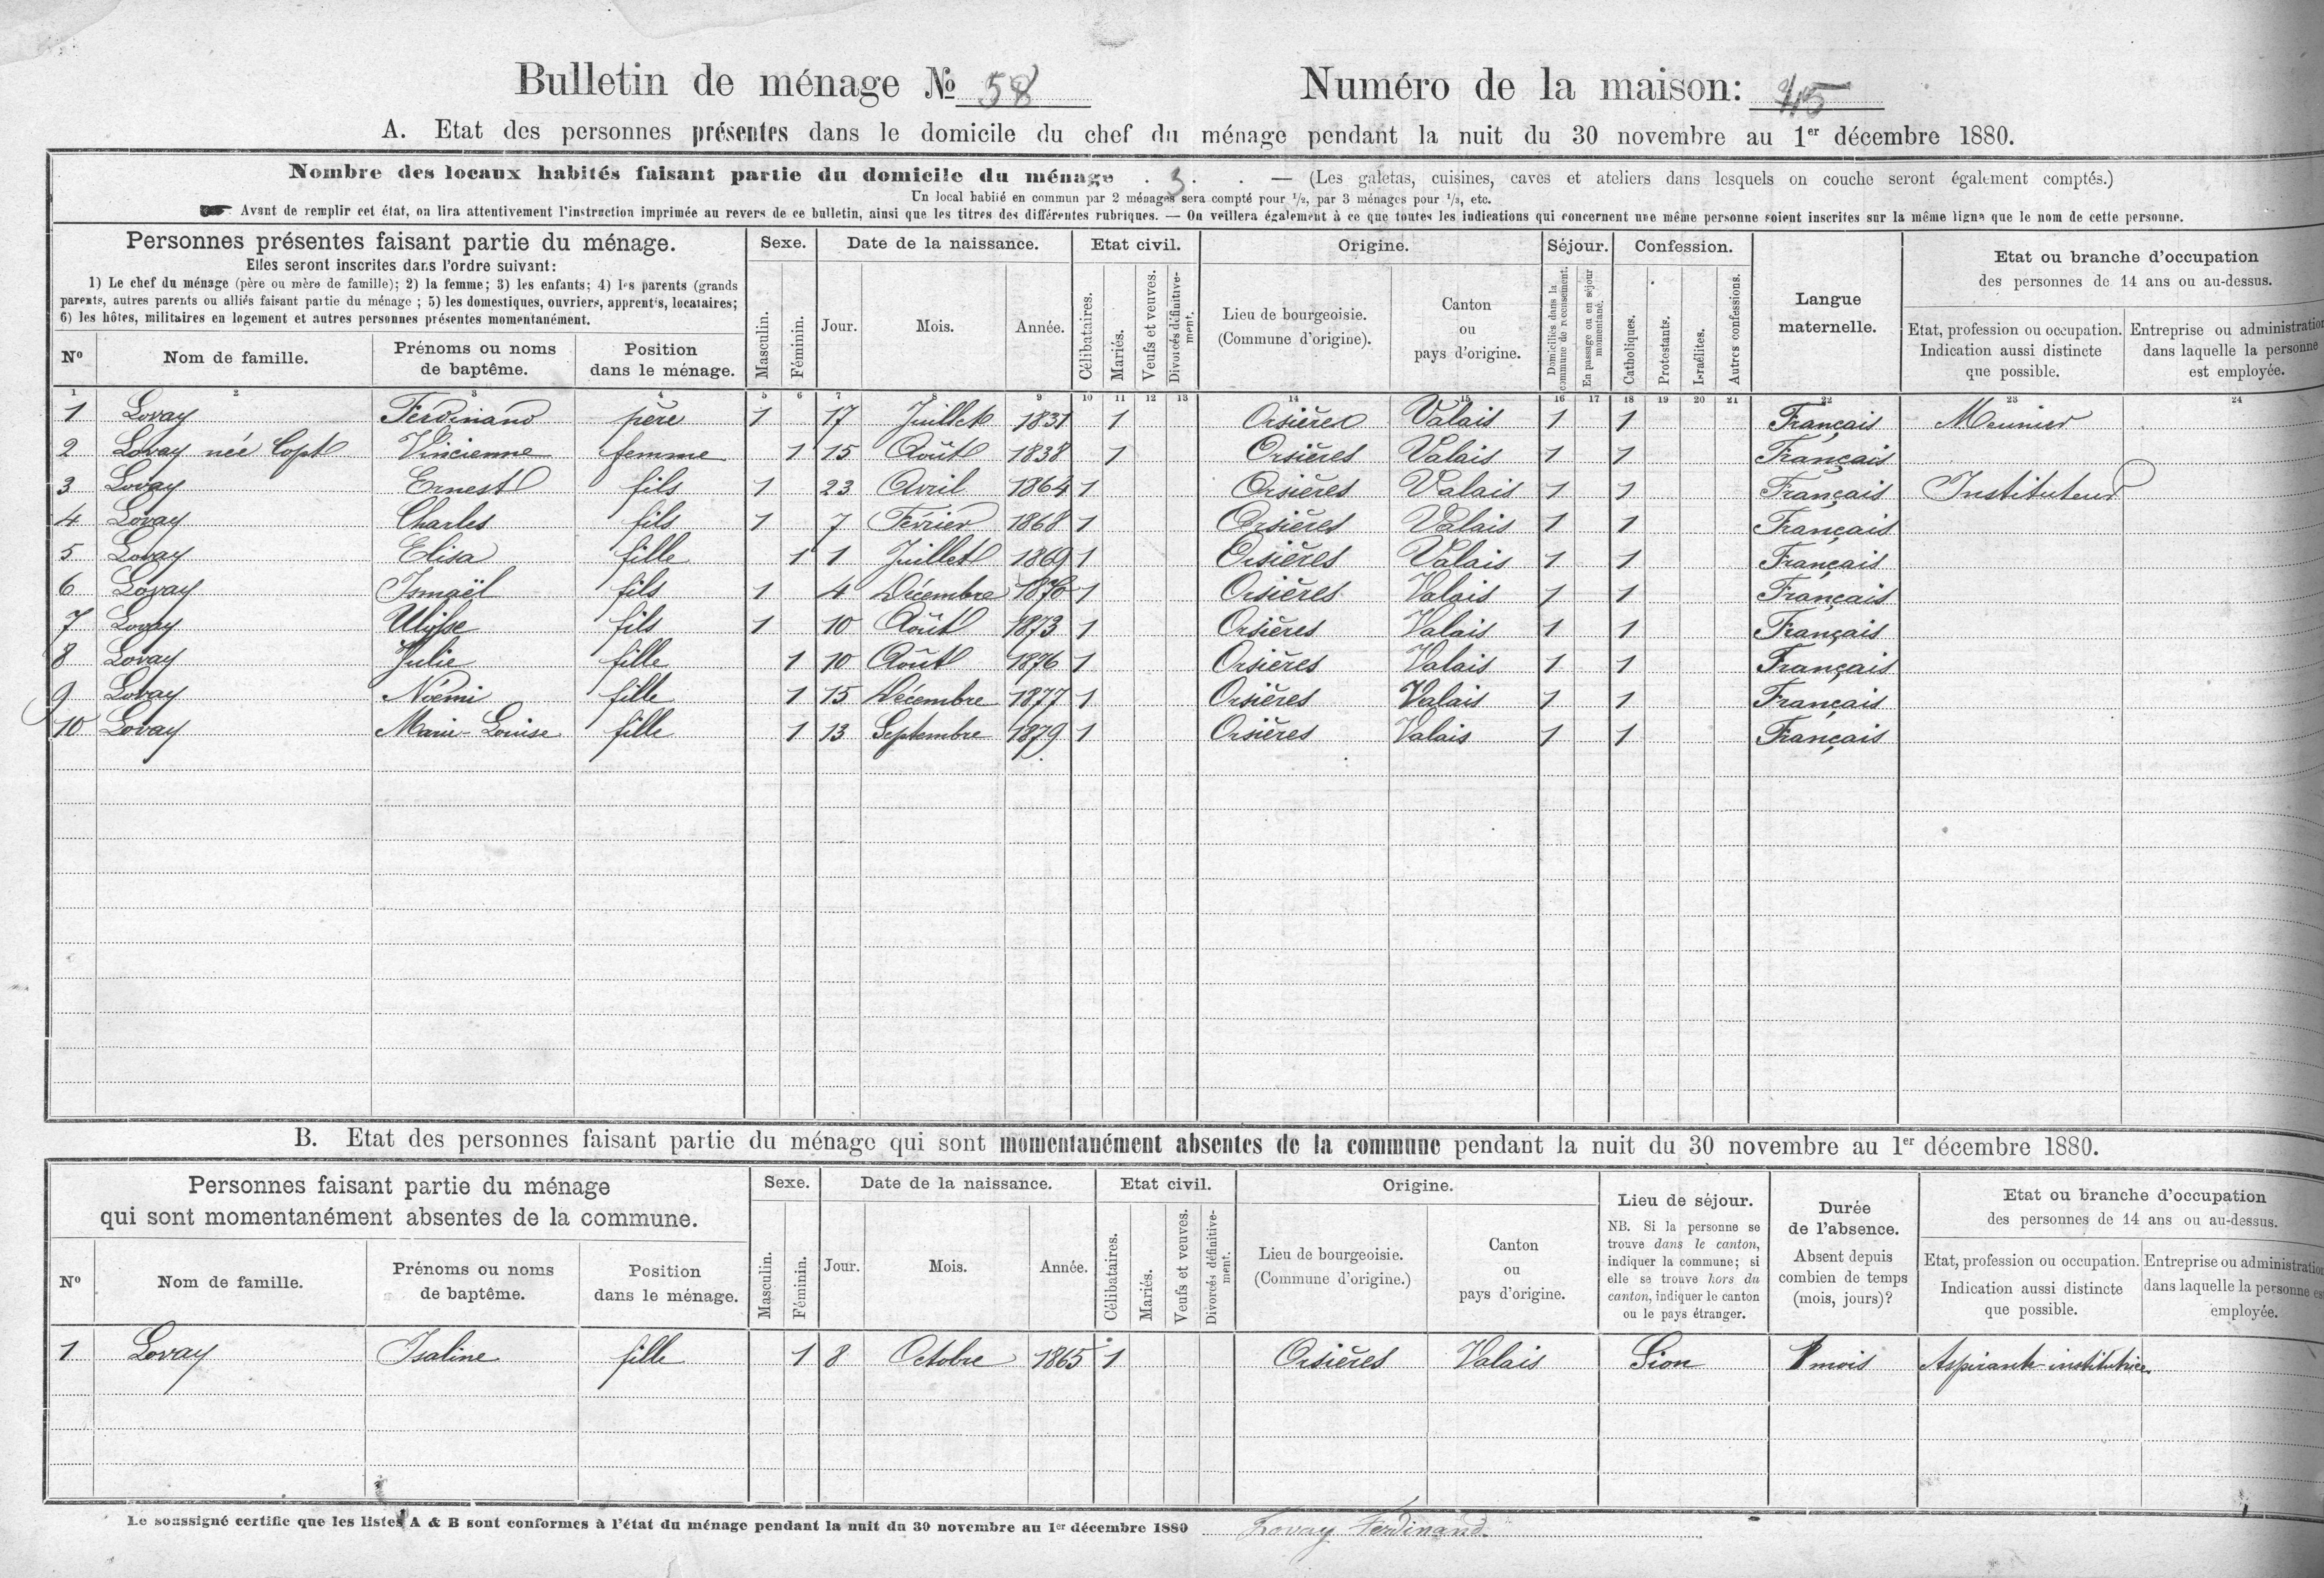 Bulletin de ménage № 58 Numéro de la maison: 45
A. Etat des personnes présentes dans le domicile du chef du ménage pendant la nuit du 30 novembre au 1er décembre 1880.
Nombre des locaux habités faisant partie du domicile du ménage . 3. . — (Les galetas, cuisines, caves et ateliers dans lesquels on couche seront également comptés.)
Un local habité en commun par 2 ménages sera compté pour 1/2, par 3 ménages pour 1/3, etc.
Avant de remplir cet état, on lira attentivement l'instruction imprimée au revers de ce bulletin, ainsi que les titres des différentes rubriques. — On veillera également à ce que toutes les indications qui concernent une même personne soient inscrites sur la même ligne que le nom de cette personne.
Personnes présentes faisant partie du ménage.
Elles seront inscrites dans l'ordre suivant:
1) Le chef du ménage (père ou mère de famille); 2) la femme; 3) les enfants; 4) les parents (grands
parents, autres parents ou alliés faisant partie du ménage ; 5) les domestiques, ouvriers, apprentis, locataires;
6) les hôtes, militaires en logement et autres personnes présentes momentanément.
Nº
Nom de famille.
Prénoms ou noms
de baptême.
Position
dans le ménage.
Sexe.
Masculin.
Féminin.
Date de la naissance.
Jour.
Mois.
Année.
Etat civil.
Célibataires.
Mariés.
Veufs et veuves.
Divorcés définitive-
ment.
Origine.
Lieu de bourgeoisie.
(Commune d'origine).
Canton
ou
pays d'origine.
Séjour.
Domiciliés dans la
commune de recensement.
En passage ou en séjour
momentané.
Confession.
Catholiques.
Protestants.
Israélites.
Autres confessions.
Langue
maternelle.
Etat ou branche d'occupation
des personnes de 14 ans ou au-dessus.
Etat, profession ou occupation.
Indication aussi distincte
que possible.
Entreprise ou administration
dans laquelle la personne
est employée.
1 2 3 4 5 6 7 8 9 10 11 12 13 14 15 16 17 18 19 20 21 22 23 24
1 Lovay Ferdinand père 1 17 Juillet 1831 1 Orsières Valais 1 1 Français Meunier
2 Lovay née Copt Vincienne femme 1 15 Août 1838 1 Orsières Valais 1 1 Français
3 Lovay Ernest fils 1 23 Avril 1864 1 Orsières Valais 1 1 Français Instituteur
4 Lovay Charles fils 1 7 Février 1868 1 Orsières Valais 1 1 Français
5 Lovay Elisa fille 1 1 Juillet 1869 1 Orsières Valais 1 1 Français
6 Lovay Ismaël fils 1 4 Décembre 1870 1 Orsières Valais 1 1 Français
7 Lovay Ulysse fils 1 10 Août 1873 1 Orsières Valais 1 1 Français
8 Lovay Julie fille 1 10 Août 1876 1 Orsières Valais 1 1 Français
9 Lovay Noémi fille 1 15 Décembre 1877 1 Orsières Valais 1 1 Français
10 Lovay Marie-Louise fille 1 13 Septembre 1879 1 Orsières Valais 1 1 Français
B. Etat des personnes faisant partie du ménage qui sont momentanément absentes de la commune pendant la nuit du 30 novembre au 1er décembre 1880.
Personnes faisant partie du ménage
qui sont momentanément absentes de la commune.
Nº
Nom de famille.
Prénoms ou noms
de baptême.
Position
dans le ménage.
Sexe.
Masculin.
Féminin.
Date de la naissance.
Jour.
Mois.
Année.
Etat civil.
Célibataires.
Mariés.
Veufs et veuves.
Divorcés définitive-
ment.
Origine.
Lieu de bourgeoisie.
(Commune d'origine.)
Canton
ou
pays d'origine.
Lieu de séjour.
NB. Si la personne se
trouve dans le canton,
indiquer la commune; si
elle se trouve hors du
canton, indiquer le canton
ou le pays étranger.
Durée
de l'absence.
Absent depuis
combien de temps
(mois, jours)?
Etat ou branche d'occupation
des personnes de 14 ans ou au-dessus.
Etat, profession ou occupation.
Indication aussi distincte
que possible.
Entreprise ou administration
dans laquelle la personne est
employée.
1 Lovay Isaline fille 1 8 Octobre 1865 1 Orsières Valais Sion 1 mois Aspirante-institutrice.
Le soussigné certifie que les listes A & B sont conformes à l'état du ménage pendant la nuit du 30 novembre au 1er décembre 1880 Lovay Ferdinand.